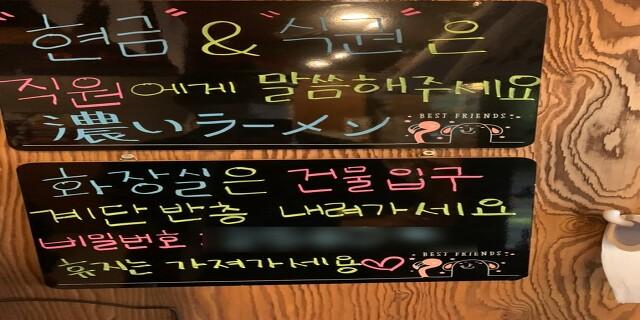 "현금" & "식권"은
직원에게 말씀해주세요
濃いラーメン
BEST FRIENDS
화장실은 건물입구
계단 반층 내려가세요
비밀번호 :
휴지는 가져가세용♡
BEST FRIENDS